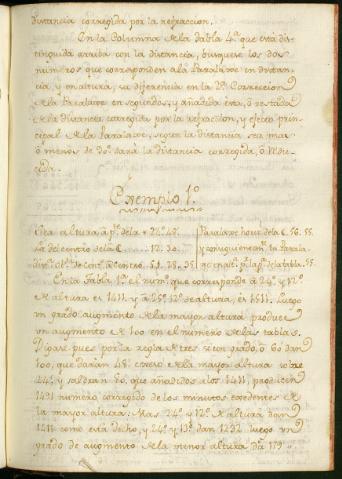 distancia corregida por la refraccion.
En la Columna de la tabla 4ª que està dis-
tinguida arriba con la distancia, busquese los dos
numeros que corresponden a la Paralaxe en distan-
cia, y en altura, su diferencia en la 2ª Correccion
de la Paralaxe en segundos, y añadida esta, ò restada
de la distancia corregida por la refraccion, y efecto prin-
cipal de la Paralaxe, segun la distancia sea mas
ò menos de 90° darà la distancia corregida, ò redu-
cida.
Exemplo 1º
altura àp. de la * 24°. 48'. Paralaxe horiz. de la C. 56. 55.
La del centro de la C 12. 30.
dist. de cent. à centro. 51. 28. 35 tabla. 55.
En la tabla 1ª el num.º que corresponde à 24° y 12°
de altura es 1411 y à 25° 12° de altura, es 1511. Luego
un grado augmento de la mayor altura produce
un augmento de 100 en el numero de las tablas.
Digase pues por la regla de tres si un grado, ò 60 dan
100, que daràn 48' exceso de la mayor altura sobre
24° y saldran 80, que añadidos a los 1411, producen
1491 numero corregido de los minutos excedentes de
la mayor altura. Mas 24° y 12° de altura dan
1411 como està dicho, y 24° y 13° dan 1232 luego un
grado de augmento de la menor altura dà 179